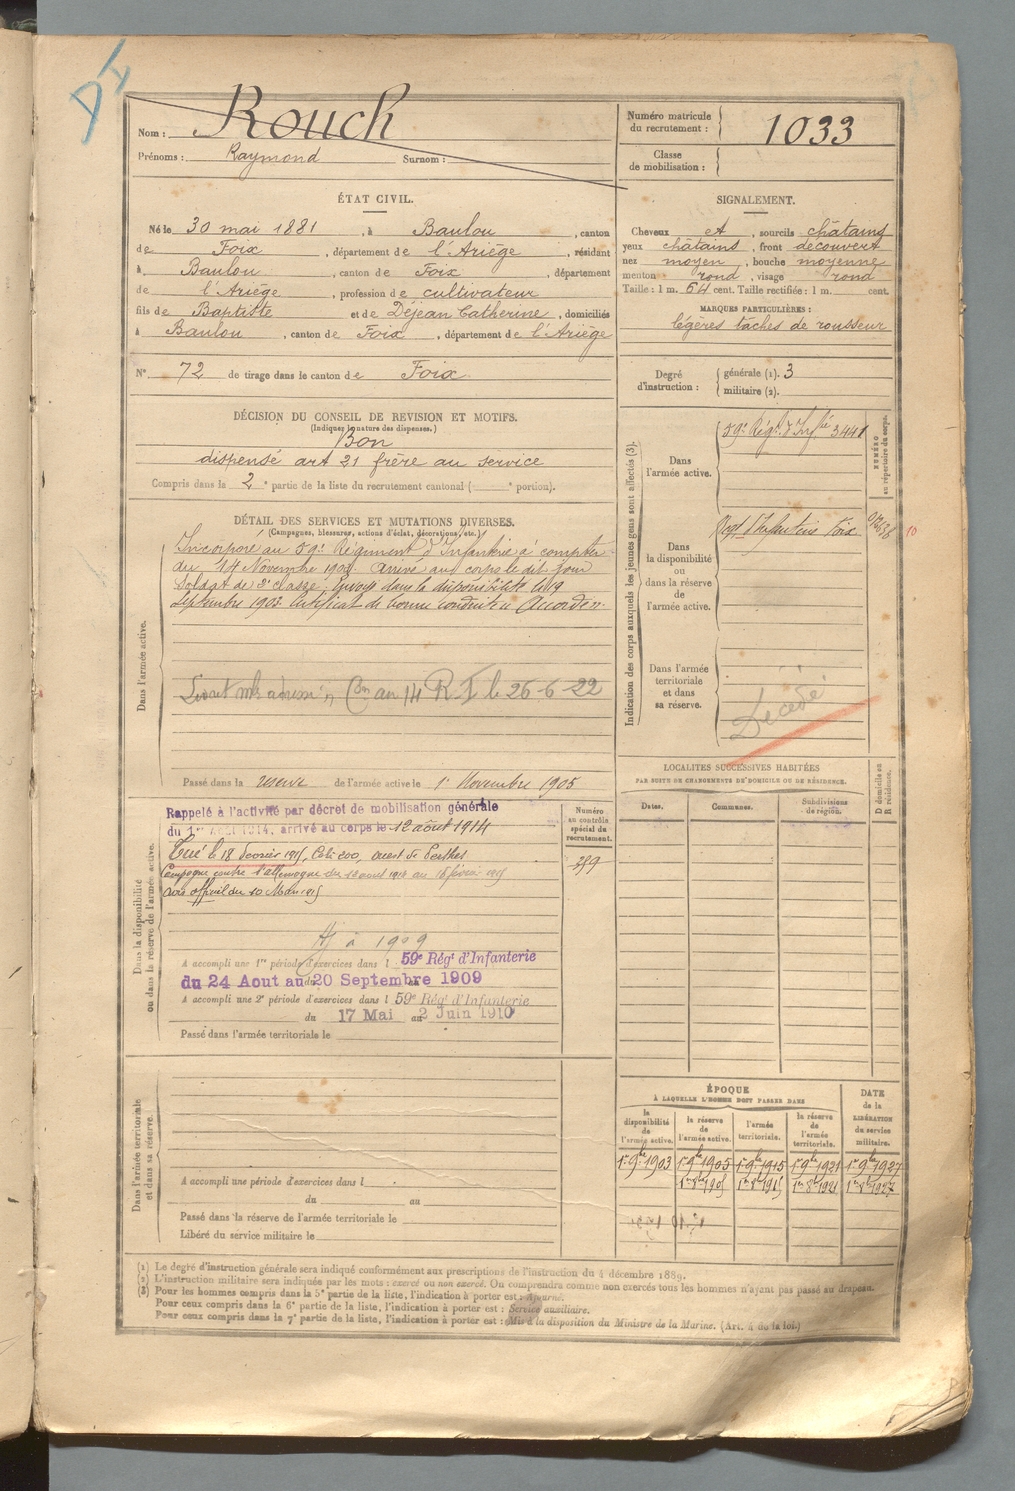 Nom : Rouch
Prénoms : Raymond Surnom :
Numéro matricule du recrutement : 1033
Classe de mobilisation :
ÉTAT CIVIL.
Né le 30 mai 1881, à Baulou, canton
de Foix, département de l'Ariège, résidant
à Baulou, canton de Foix, département
de l'Ariège, profession de cultivateur
fils de Baptiste et de Déjean Catherine, domiciliés
à Baulou, canton de Foix, département de l'Ariège
N° 72 de tirage dans le canton de Foix
SIGNALEMENT.
Cheveux et, sourcils châtains
yeux châtains, front découvert
nez moyen, bouche moyenne
menton rond, visage rond
Taille : 1 m. 64 cent. Taille rectifiée : 1 m. cent.
MARQUES PARTICULIÈRES :
légères tâches de rousseur
Degré d'instruction : générale (1). 3
militaire (2).
DÉCISION DU CONSEIL DE REVISION ET MOTIFS.
(Indiquer la nature des dispenses.)
Bon
dispensé art 21 frère au service
Compris dans la 2e partie de la liste du recrutement cantonal ( e portion).
DÉTAIL DES SERVICES ET MUTATIONS DIVERSES.
(Campagnes, blessures, actions d'éclat, décorations, etc.)
Dans l'armée active.
Incorporé au 59e Régiment d'Infanterie à compter
du 14 Novembre 1902. Arrivé au corps le dit jour
Soldat de 2e classe, Envoyé dans la disponibilité le 19
Septembre 1903. Certificat de bonne conduite Accordé.
au 14 R. I le 26-6-22
Passé dans la réserve de l'armée active le 1er Novembre 1905
Indication des corps auxquels les jeunes gens sont affectés (3).
NUMÉRO au répertoire du corps.
Dans l'armée active.
59e Régt d'Infie 3441
Dans la disponibilité ou dans la réserve de l'armée active.
Regt d'Infanterie Foix
10
Dans l'armée territoriale et dans sa réserve.
Décédé
LOCALITÉS SUCCESSIVES HABITÉES
PAR SUITE DE CHANGEMENTS DE DOMICILE OU DE RÉSIDENCE.
D domicile ou R résidence.
Dates. Communes. Subdivisions de région.
Dans la disponibilité ou dans la réserve de l'armée active.
Rappelé à l'activité par décret de mobilisation générale
du 1er 1914, arrivé au corps le 12 août 1914
Tué le 18 février 1915, Cote 200, ouest de Perthes
Campagne contre l'allemagne du 12 aout 1914 au 18 février 1915
avis officiel du 10 Mars 1915
Numéro au contrôle spécial du recrutement.
à 1909
A accompli une 1re période d'exercices dans l 59e Régt d'Infanterie
du 24 Aout au 20 Septembre 1909
A accompli une 2e période d'exercices dans l 59e Régt d'Infanterie
du 17 Mai au 2 Juin 1910
Passé dans l'armée territoriale le
Dans l'armée territoriale et dans sa réserve.
A accompli une période d'exercices dans l
du au
Passé dans la réserve de l'armée territoriale le
Libéré du service militaire le
ÉPOQUE
À LAQUELLE L'HOMME DOIT PASSER DANS
DATE de la LIBÉRATION du service militaire.
la disponibilité de l'armée active. la réserve de l'armée active. l'armée territoriale. la réserve de l'armée territoriale.
1er 9bre 1903 1er 9bre 1905 1er 9bre 1915 1er 9bre 1921 1er 9bre 1927
1er 8bre 1905 1er 8bre 1915 1er 8bre 1921 1er 8bre 1927
(1) Le degré d'instruction générale sera indiqué conformément aux prescriptions de l'instruction du 4 décembre 1889.
(2) L'instruction militaire sera indiquée par les mots : exercé ou non exercé. On comprendra comme non exercés tous les hommes n'ayant pas passé au drapeau.
(3) Pour les hommes compris dans la 5e partie de la liste, l'indication à porter est : Ajourné.
Pour ceux compris dans la 6e partie de la liste, l'indication à porter est : Service auxiliaire.
Pour ceux compris dans la 7e partie de la liste, l'indication à porter est : Mis à la disposition du Ministre de la Marine. (Art. 4 de la loi.)